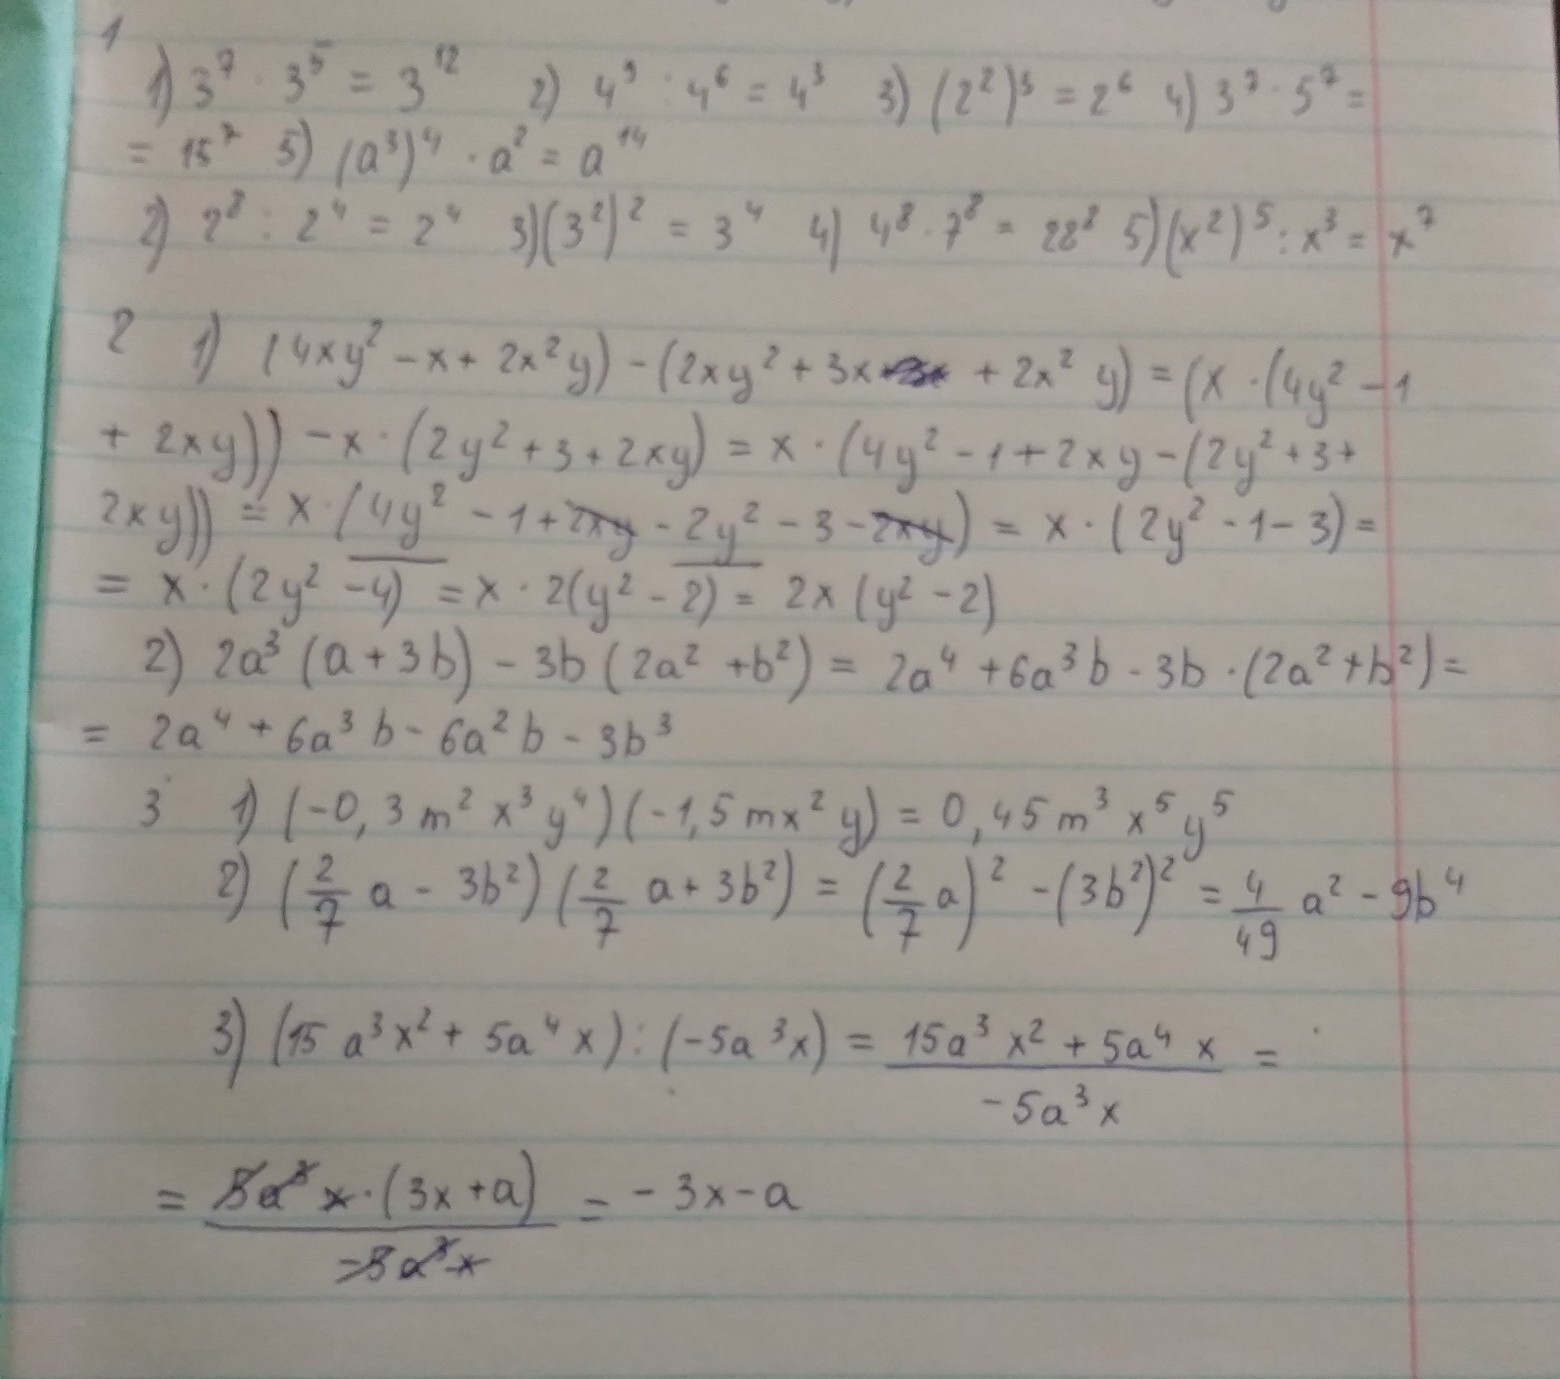 1
1) 3⁷ · 3⁵ = 3¹² 2) 4⁹ : 4⁶ = 4³ 3) (2²)³ = 2⁶ 4) 3⁷ · 5⁷ =
= 15⁷ 5) (a³)⁴ · a² = a¹⁴
2) 2⁸ : 2⁴ = 2⁴ 3) (3²)² = 3⁴ 4) 4⁸ · 7⁸ = 28⁸ 5) (x²)⁵ : x³ = x⁷
2 1) (4xy² – x + 2x²y) – (2xy² + 3x + 2x² y) = (x · (4y² – 1
+ 2xy)) – x · (2y² + 3 + 2xy) = x · (4y² – 1 + 2xy – (2y² + 3 +
2xy)) = x · (4y² – 1 + 2xy - 2y² – 3 – 2xy) = x · (2y² - 1 – 3) =
= x · (2y² – 4) = x · 2(y² – 2) = 2x (y² – 2)
2) 2a³ (a + 3b) – 3b (2a² + b²) = 2a⁴ + 6a³b - 3b · (2a² + b²) =
= 2a⁴ + 6a³b - 6a²b – 3b³
3 1) (–0,3m² x³y⁴)(–1,5mx²y) = 0,45m³ x⁵y⁵
2) (2/7 a – 3b²)(2/7 a + 3b²) = (2/7 a)² – (3b²)² = 4/49 a² – 9b⁴
3) (15 a³x² + 5a⁴x) : (–5a³x) = (15a³ x² + 5a⁴ x)/(–5a³x) =
= (5a³x · (3x + a))/(–5a³x) = – 3x – a